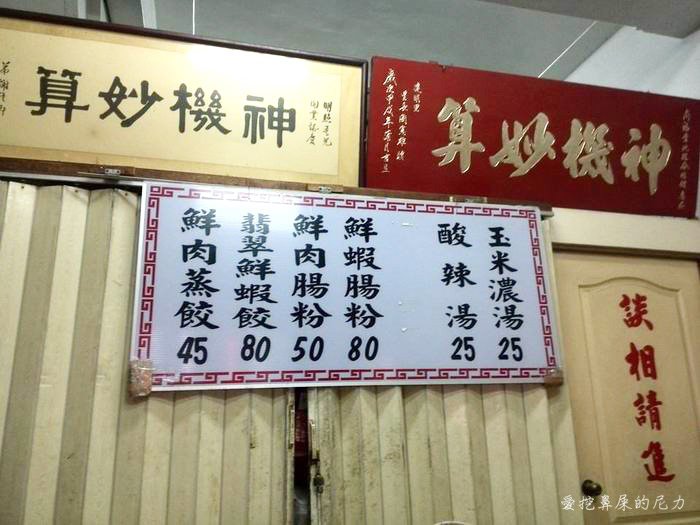 神機妙算
神機妙算
玉米濃湯 25
酸辣湯 25
鮮蝦腸粉 80
鮮肉腸粉 50
翡翠鮮蝦餃 80
鮮肉蒸餃 45
談相請進
愛挖鼻屎的尼力